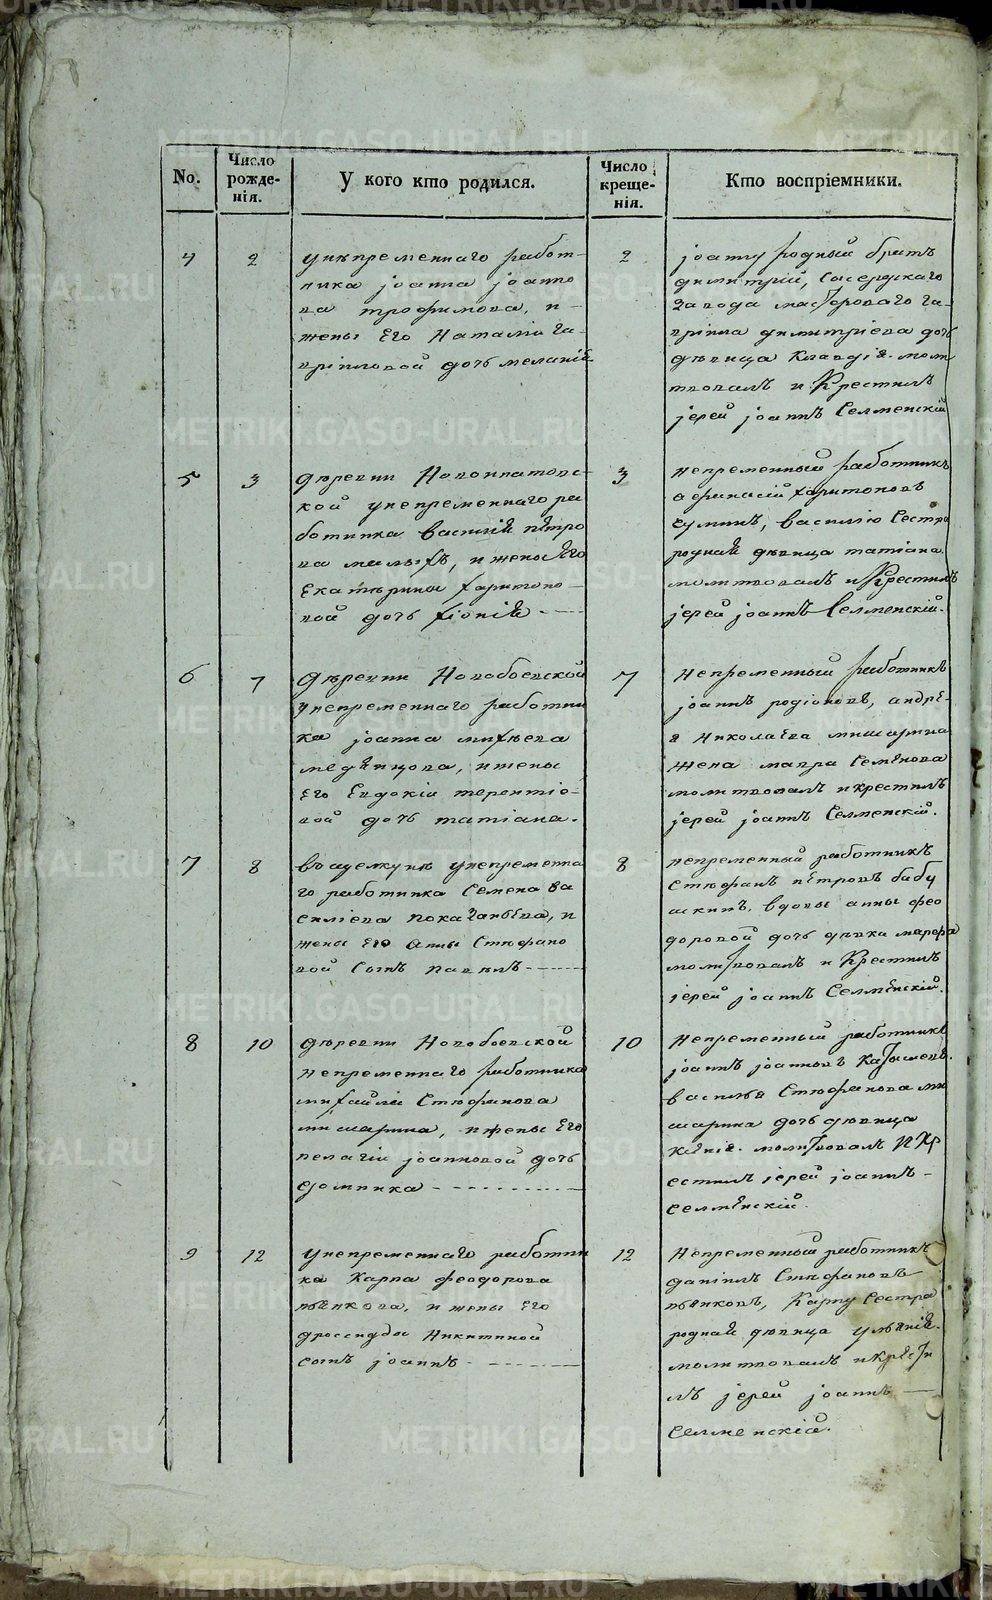 No.
Число рожде-нія.
У кого кто родился.
Число креще-нія.
Кто воспріемники.
4
2
унепременнаго работ-
ника јоанна јоанно
ва трофимова, и
жены Его Наталіи га-
вріиловой дочь меланія
2
јоанну родный братъ
димитрій, сысердскаго
завода мастероваго га-
вріила димитріева дочь
дѣвица клавдія. моли
твовалъ и Крестилъ
јерей јоаннъ Селменскій
5
3
деревни Новоипатовс-
кой унепременнаго ра
ботника василія петро
ва малыхъ, и жены Его
Екатерины харитоно-
вой дочь хіонія
3
непременный работникъ
афанасій харитоновъ
чуминъ, василію Сестра
родная дѣвица татіана
молитвовалъ и Крестилъ
јерей јоаннъ Селменскій.
6
7
деревни Новобоевской
унепременнаго работни
ка јоанна михѣева
медвѣнцова, и жены
Его Евдокіи терентіе-
вой дочь татіана.
7
Непременный работникъ
јоаннъ родіоновъ, андре-
я Николаева мишарина
жена мавра Семенова
молитвовалъ и крестилъ
јерей јоаннъ Селменскій.
7
8
въ щелкунѣ унепременна
го работника Семена Ва
силіева покачанѣва, и
жены Его Анны Стефано
вой сынъ павелъ
8
непременный работникъ
Стефанъ петровъ бабу
шкинъ, вдовы анны фео
доровой дочь дѣвка марфа
молитвовалъ и Крестилъ
јерей јоаннъ Селменскій.
8
10
деревни Новобоевской
Непременнаго работника
михаила Стефанова
мишарина, и жены Его
пелагіи јоанновой дочь
домника
10
Непременный работникъ
јоаннъ јоанновъ
василья Стефанова ми
шарина дочь дѣвица
ксенія. молитвовалъ И Кр
естилъ јерей јоаннъ
Селменскій.
9
12
унепременнаго работни
ка Карпа феодорова
пьянкова, и жены Его
дросиды Никитиной
сынъ јоаннъ
12
Непременный работникъ
даніилъ Стефановъ
пьянковъ, Карпу Сестра
родная дѣвица ульянія.
молитвовалъ и крести
лъ јерей јоаннъ
Селменскій.
METRIKI.GASO-URAL.RU